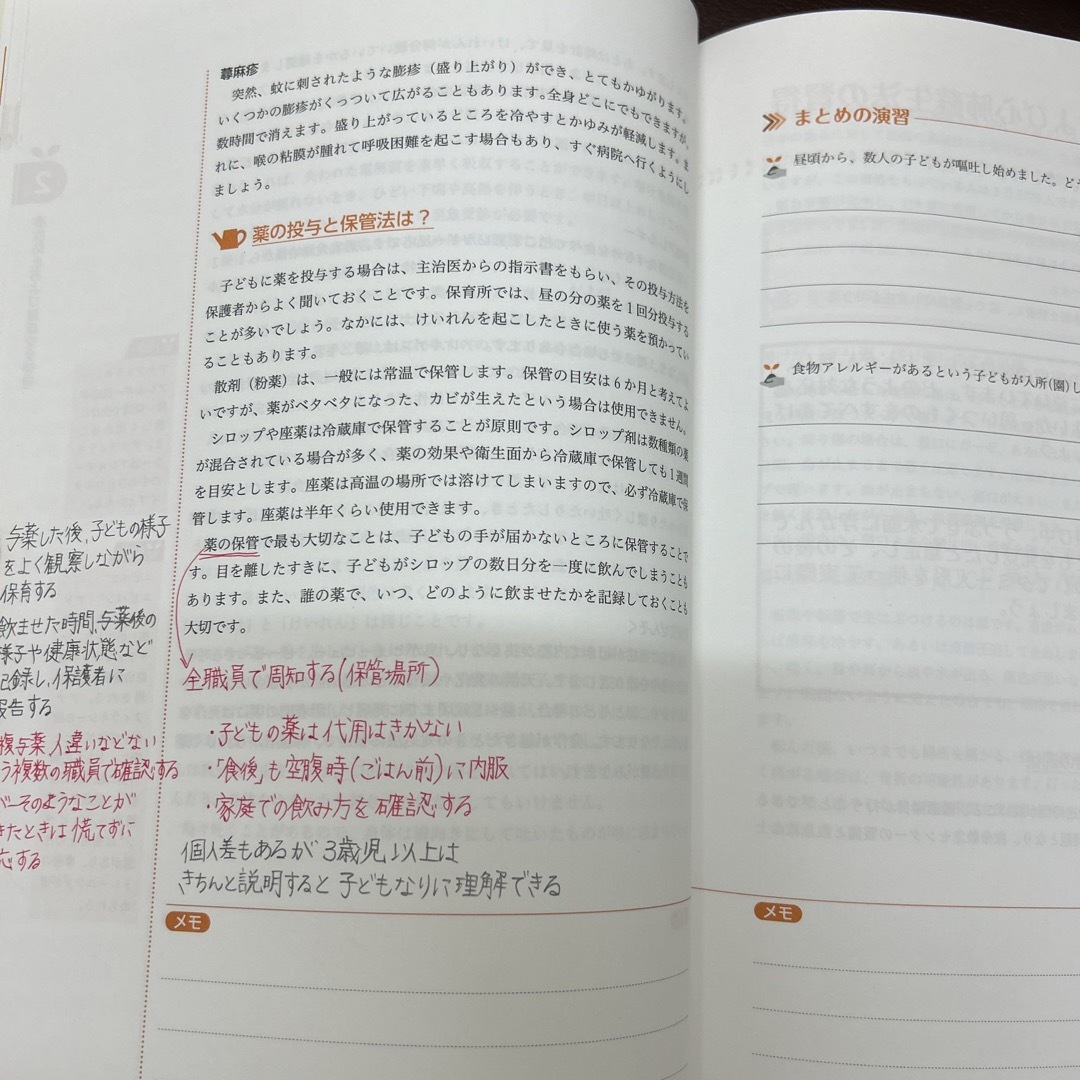 蕁麻疹
突然、蚊に刺されたような膨疹（盛り上がり）ができ、とてもかゆがります。
いくつかの膨疹がくっついて広がることもあります。全身どこにでもできますが、
数時間で消えます。盛り上がっているところを冷やすとかゆみが軽減します。ま
れに、喉の粘膜が腫れて呼吸困難を起こす場合もあり、すぐ病院へ行くようにし
ましょう。
薬の投与と保管法は？
子どもに薬を投与する場合は、主治医からの指示書をもらい、その投与方法を
保護者からよく聞いておくことです。保育所では、昼の分の薬を1回分投与する
ことが多いでしょう。なかには、けいれんを起こしたときに使う薬を預かってい
ることもあります。
散剤（粉薬）は、一般には常温で保管します。保管の目安は6か月と考えてよ
いですが、薬がベタベタになった、カビが生えたという場合は使用できません。
シロップや座薬は冷蔵庫で保管することが原則です。シロップ剤は数種類の薬
が混合されている場合が多く、薬の効果や衛生面から冷蔵庫で保管しても1週間
を目安とします。座薬は高温の場所では溶けてしまいますので、必ず冷蔵庫で保
管します。座薬は半年くらい使用できます。
薬の保管で最も大切なことは、子どもの手が届かないところに保管することで
す。目を離したすきに、子どもがシロップの数日分を一度に飲んでしまうことも
あります。また、誰の薬で、いつ、どのように飲ませたかを記録しておくことも
大切です。
全職員で周知する(保管場所)
・子どもの薬は代用はきかない
・「食後」も空腹時(ごはん前)に内服
・家庭での飲み方を確認する
個人差もあるが3歳児以上は
きちんと説明すると子どもなりに理解できる
メモ
与薬した後、子どもの様子
をよく観察しながら
保育する
飲ませた時間、与薬後の
様子や健康状態など
記録し、保護者に
報告する
複与薬人違いなどない
う複数の職員で確認する
が一そのようなことが
きたときは慌てずに
応する
まとめの演習
昼頃から、数人の子どもが嘔吐し始めました。どう
食物アレルギーがあるという子どもが入所(園)し
メモ